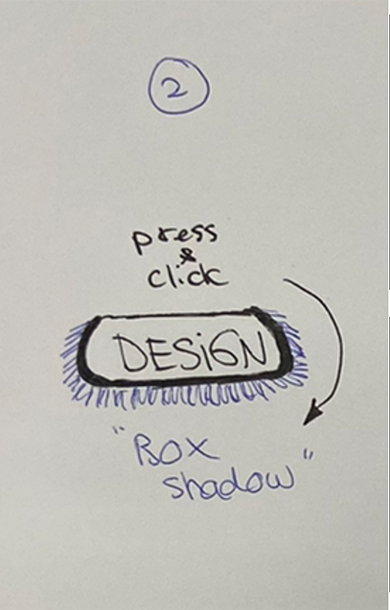 2
press
&
click
DESiGN
"Box
shadow"